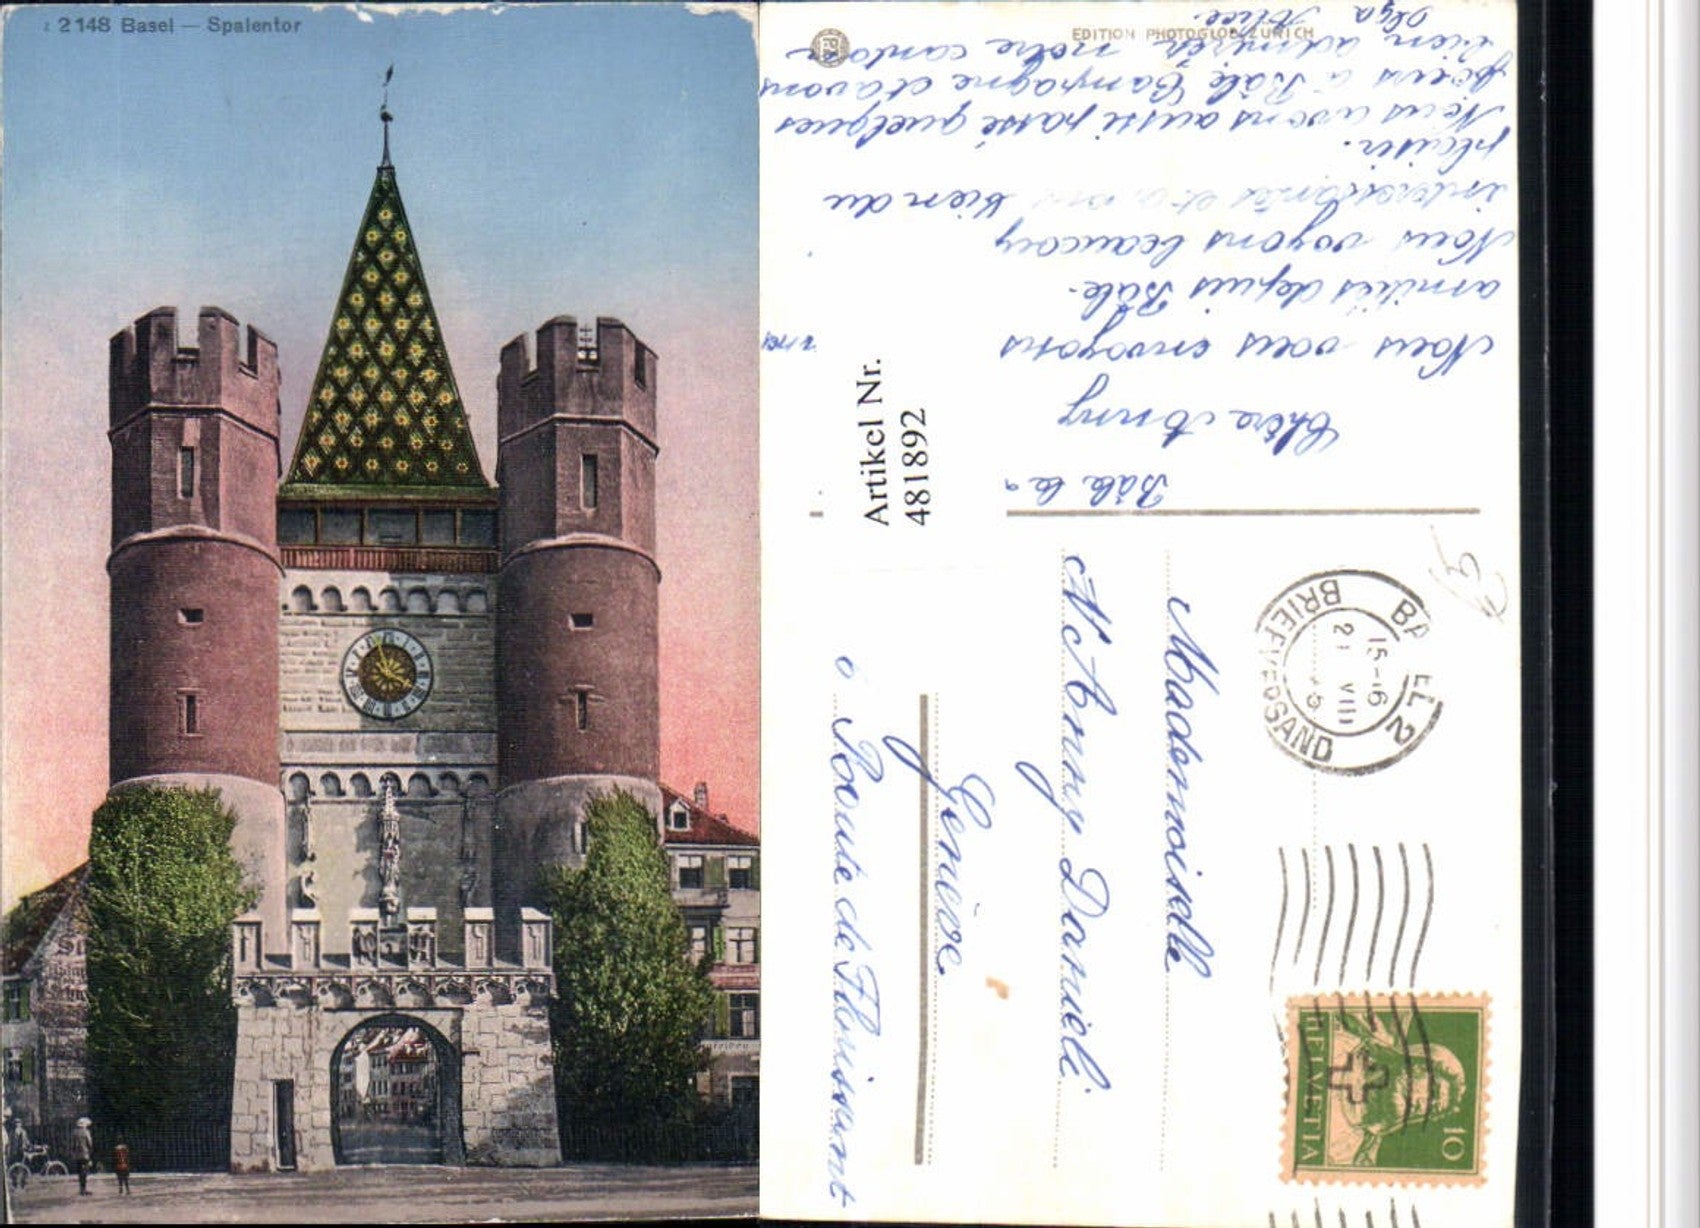 2148 Basel — Spalentor
EDITION PHOTOGLOB ZURICH
Bâle le
Chère Anny
Nous vous envoyons
amitiés depuis Bâle.
Nous voyons beaucoup
intéressantes et bien du
plaisir.
Nous avons aussi passé quelques
jours à Bâle Campagne et avons
bien admiré notre canton
Olga Alice.
Artikel Nr.
481892
Mademoiselle
Anny Danieli
Genève
6 Route de Florissant
BASEL 2
15-16
21 VIII
BRIEFVERSAND
HELVETIA
10